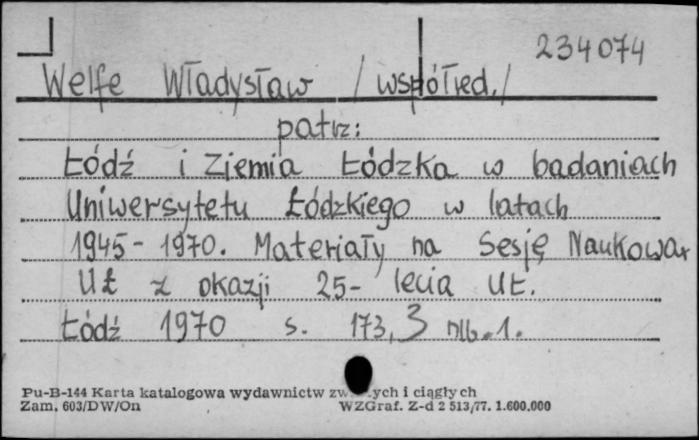 234074
Welfe Władysław /współred./
patrz:
Łódź i Ziemia Łódzka w badaniach
Uniwersytetu Łódzkiego w latach
1945-1970. Materiały na Sesję Naukową
UŁ z okazji 25-lecia UŁ.
Łódź 1970 s. 173, 3 nlb. 1.
Pu-B-144 Karta katalogowa wydawnictw i ciągłych
Zam. 603/DW/On WZGraf. Z-d 2 513/77. 1.600.000